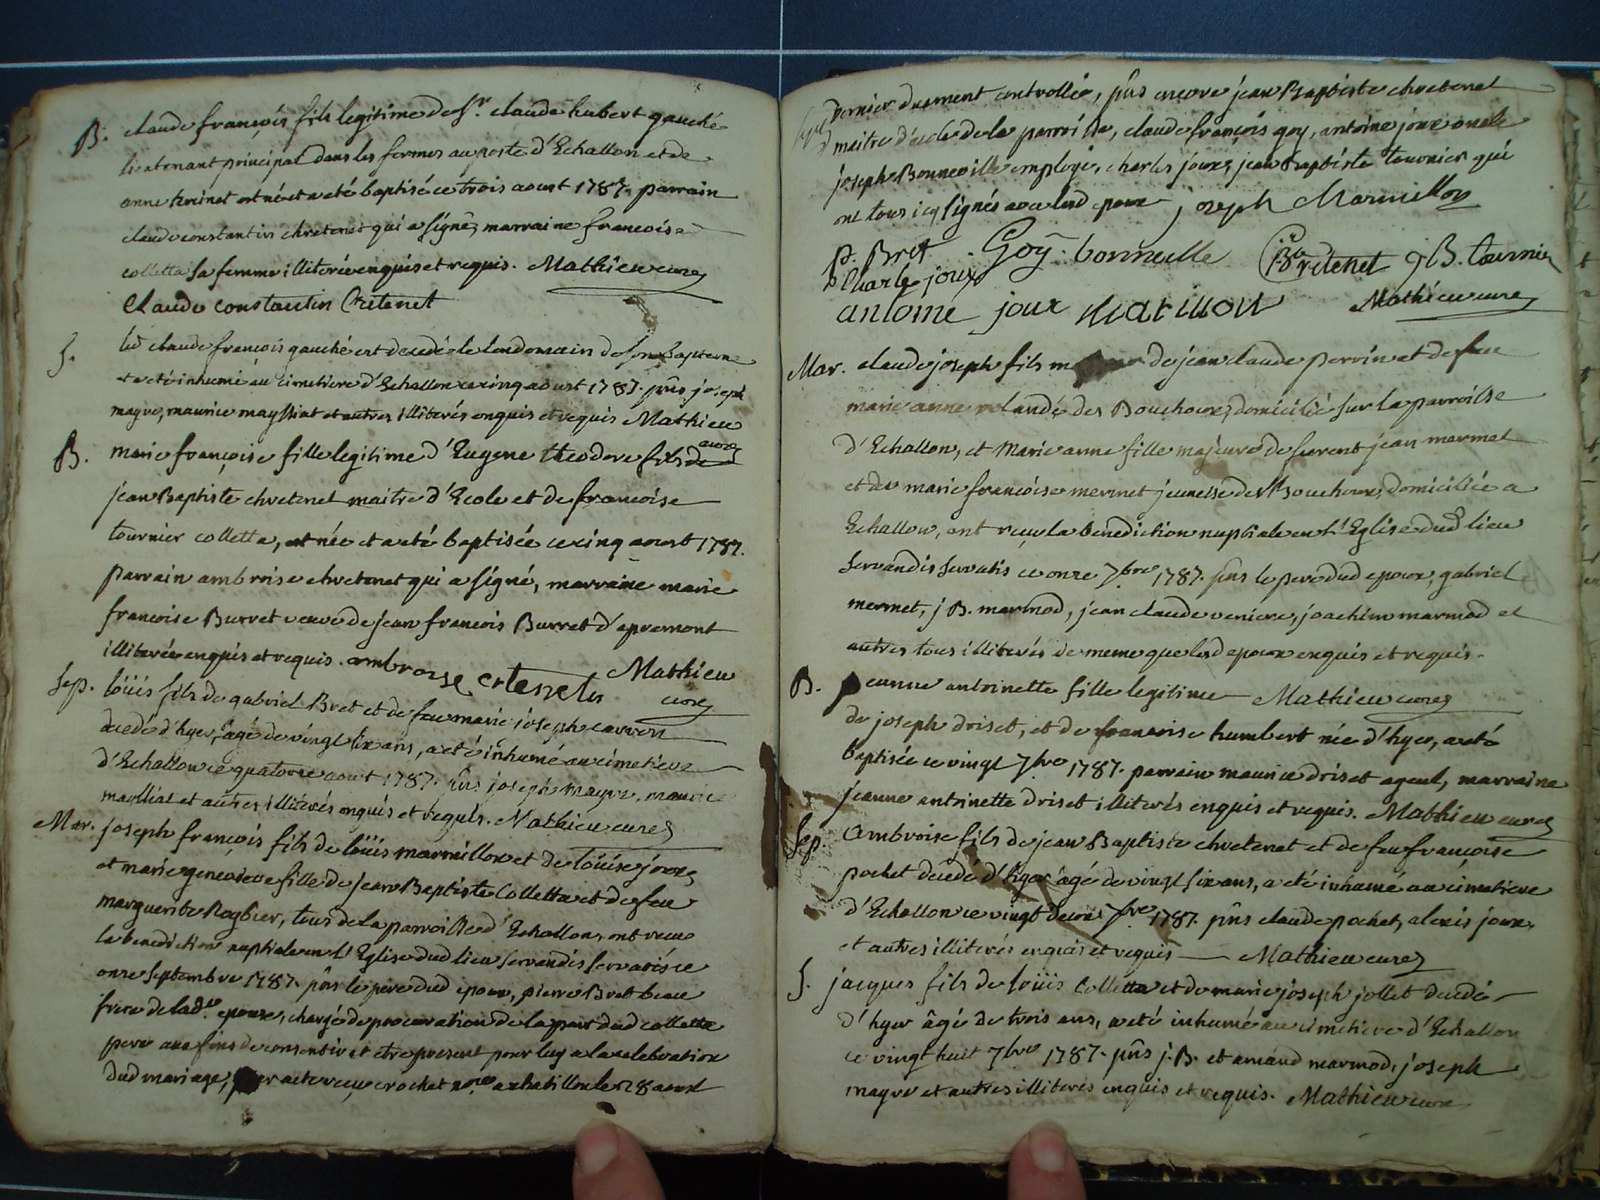 B. claude françois fils legitime de Sr. claude hubert gauché
lieutenant principal dans les fermes au poste d'Echallon et de
anne est né et a eté baptisé ce trois aoust 1787. parrain
claude constantin chretenet qui a signé, marraine francoise
colletta sa femme illiterée enquis et requis. Mathieu curé
Claude constantin Cretenet
S. led claude francois gauché est decedé le lendemain de son Bapteme
et a eté inhumé au cimetiere d'Echallon ce cinq aoust 1787. pñs joseph
mayre, maurice mayssiat et autres illiterés enquis et requis Mathieu
curé
B. marie françoise fille legitime d'Eugene theodore fils de
jean Baptiste chretenet maitre d'Ecole et de francoise
tournier colletta, est née et a eté baptisée ce cinq aoust 1787.
parrain ambroise chretenet qui a signé, marraine marie
francoise Burret veuve de jean francois Burret d'apremont
illiterée enquis et requis. ambroise cretenet Mathieu
curé
Sep. loüis fils de gabriel Bret et de feue marie joseph carron
decedé d'hyer, âgé de vingt six ans, a eté inhumé au cimetiere
d'Echallon ce quatorze aoust 1787. pñs joseph mayre, maurice
maylliat et autres illiterés enquis et requis. Mathieu curé
Mar. joseph françois fils de loüis marmillon et de loüise joux,
et marie genevieve fille de jean Baptiste Colletta et de feue
marguerite Rogbier, tous de la parroisse d'Echallon, ont receu
la benediction nuptiale en l'Eglise dud lieu servandis servatis ce
onze septembre 1787. pñs le pere dud epoux, pierre Bret beau
frere de lade. epouse, chargé de procuration de la part dud colletta
pere aux fins de consentir et etre present pour luy a la celebration
dud mariage, par acte reçu crochet nore. a chatillon le 28 aoust
dernier duement controllé, pñs encore jean Baptiste chretenet
maitre d'ecole de la parroisse, claude françois goy, antoine joux oncle
joseph Bonneville employé, charles joux, jean Baptiste tournier qui
ont tous icy signés avec led epoux joseph Marmillon
p. Bret Goÿ bonneville JB Cretenet JB. tournier
Charle joux
antoine joux Mathieu curé
Mar. claude joseph fils de jean claude perrin et de feue
marie anne rolandé des Bouchoux, domicilié sur la parroisse
d'Echallon, et Marie anne fille majeure de feu jean mermet
et de marie françoise mermet jeunesse des Bouchoux, domiciliée a
Echallon, ont reçu la benediction nuptiale en l'Eglise dud lieu
servandis servatis ce onze 7bre 1787. pñs le pere dud epoux, gabriel
mermet, j B. marmod, jean claude veniere, joachim marmod et
autres tous illiterés de meme que lesd epoux enquis et requis.
B. jeanne antoinette fille legitime Mathieu curé
de joseph driset, et de francoise humbert née d'hyer, a eté
baptisée ce vingt 7bre 1787. parrain maurice driset ayeul, marraine
jeanne antoinette driset illiterés enquis et requis. Mathieu curé
Sep. Ambroise fils de jean Baptiste chretenet et de feu françoise
pochet decedé d'hyer âgé de vingt six ans, a eté inhumé au cimetiere
d'Echallon ce vingt deux 7bre 1787. pñs claude pochet, alexis joux,
et autres illiterés enquis et requis Mathieu curé
S. jacques fils de loüis Colletta et de marie joseph jollet decedé
d'hyer âgé de trois ans, a eté inhumé au cimetiere d'Echallon
ce vingt huit 7bre 1787. pñs j. B. et amand marmod, joseph
mayre et autres illiterés enquis et requis. Mathieu curé